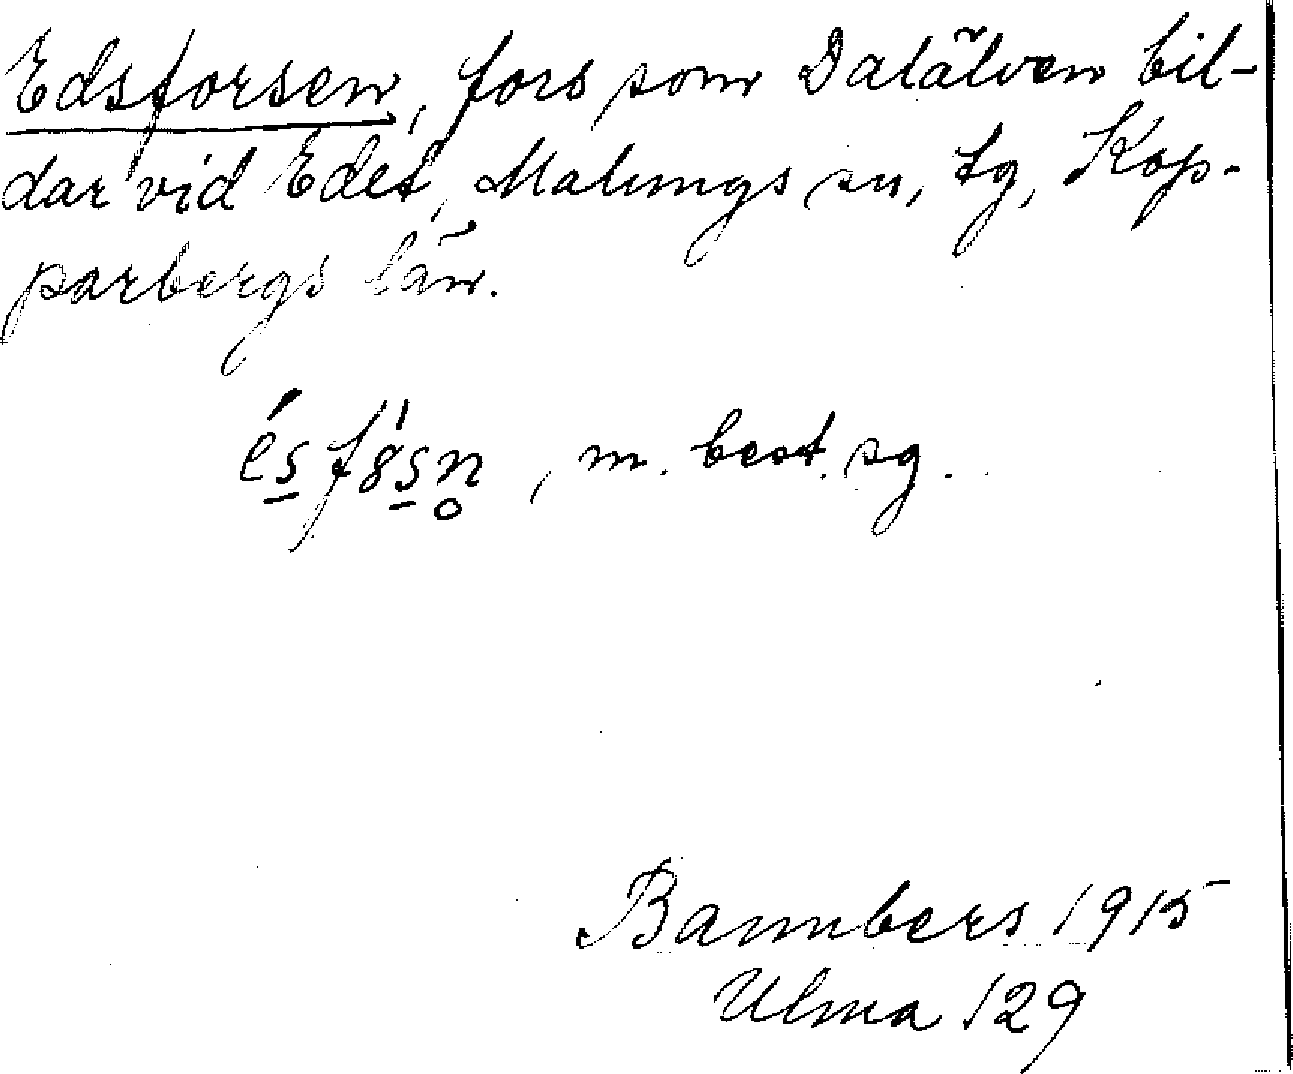 Edsforsen, fors som Dalälven bil-
dar vid Edet, Malungs sn, tg, Kop-
parbergs län.
és̱fꞌ8s̱n̥, m. best. sg.
Bannbers 1915
Ulma 129